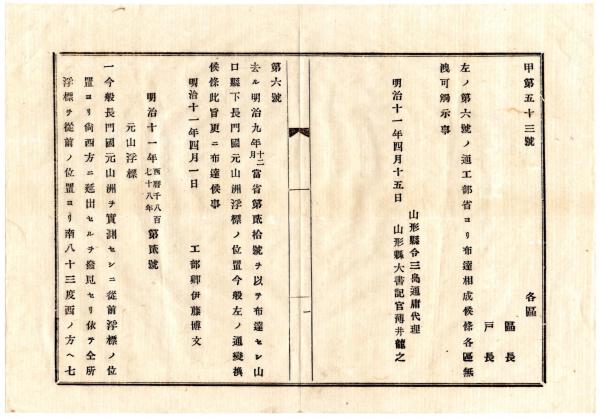 甲第五十三號
各區
區長
戸長
左ノ第六號ノ通工部省ヨリ布達相成候條各區無
洩可觸示事
山形縣令三島通庸代理
明治十一年四月十五日 山形縣大書記官薄井龍之
第六號
去ル明治九年十二月當省第貳拾號ヲ以テ布達セシ山
口縣下長門國元山洲浮標ノ位置今般左ノ通變換
候條此旨更ニ布達候事
明治十一年四月一日 工部卿伊藤博文
明治十一年西曆千八百七十八年第貳號
元山浮標
一今般長門國元山洲ヲ實測セシニ從前浮標ノ位
置ヨリ尙西方ニ延出セルヲ發見セリ依テ仝所
浮標ヲ從前ノ位置ヨリ南八十三度西ノ方ヘ七